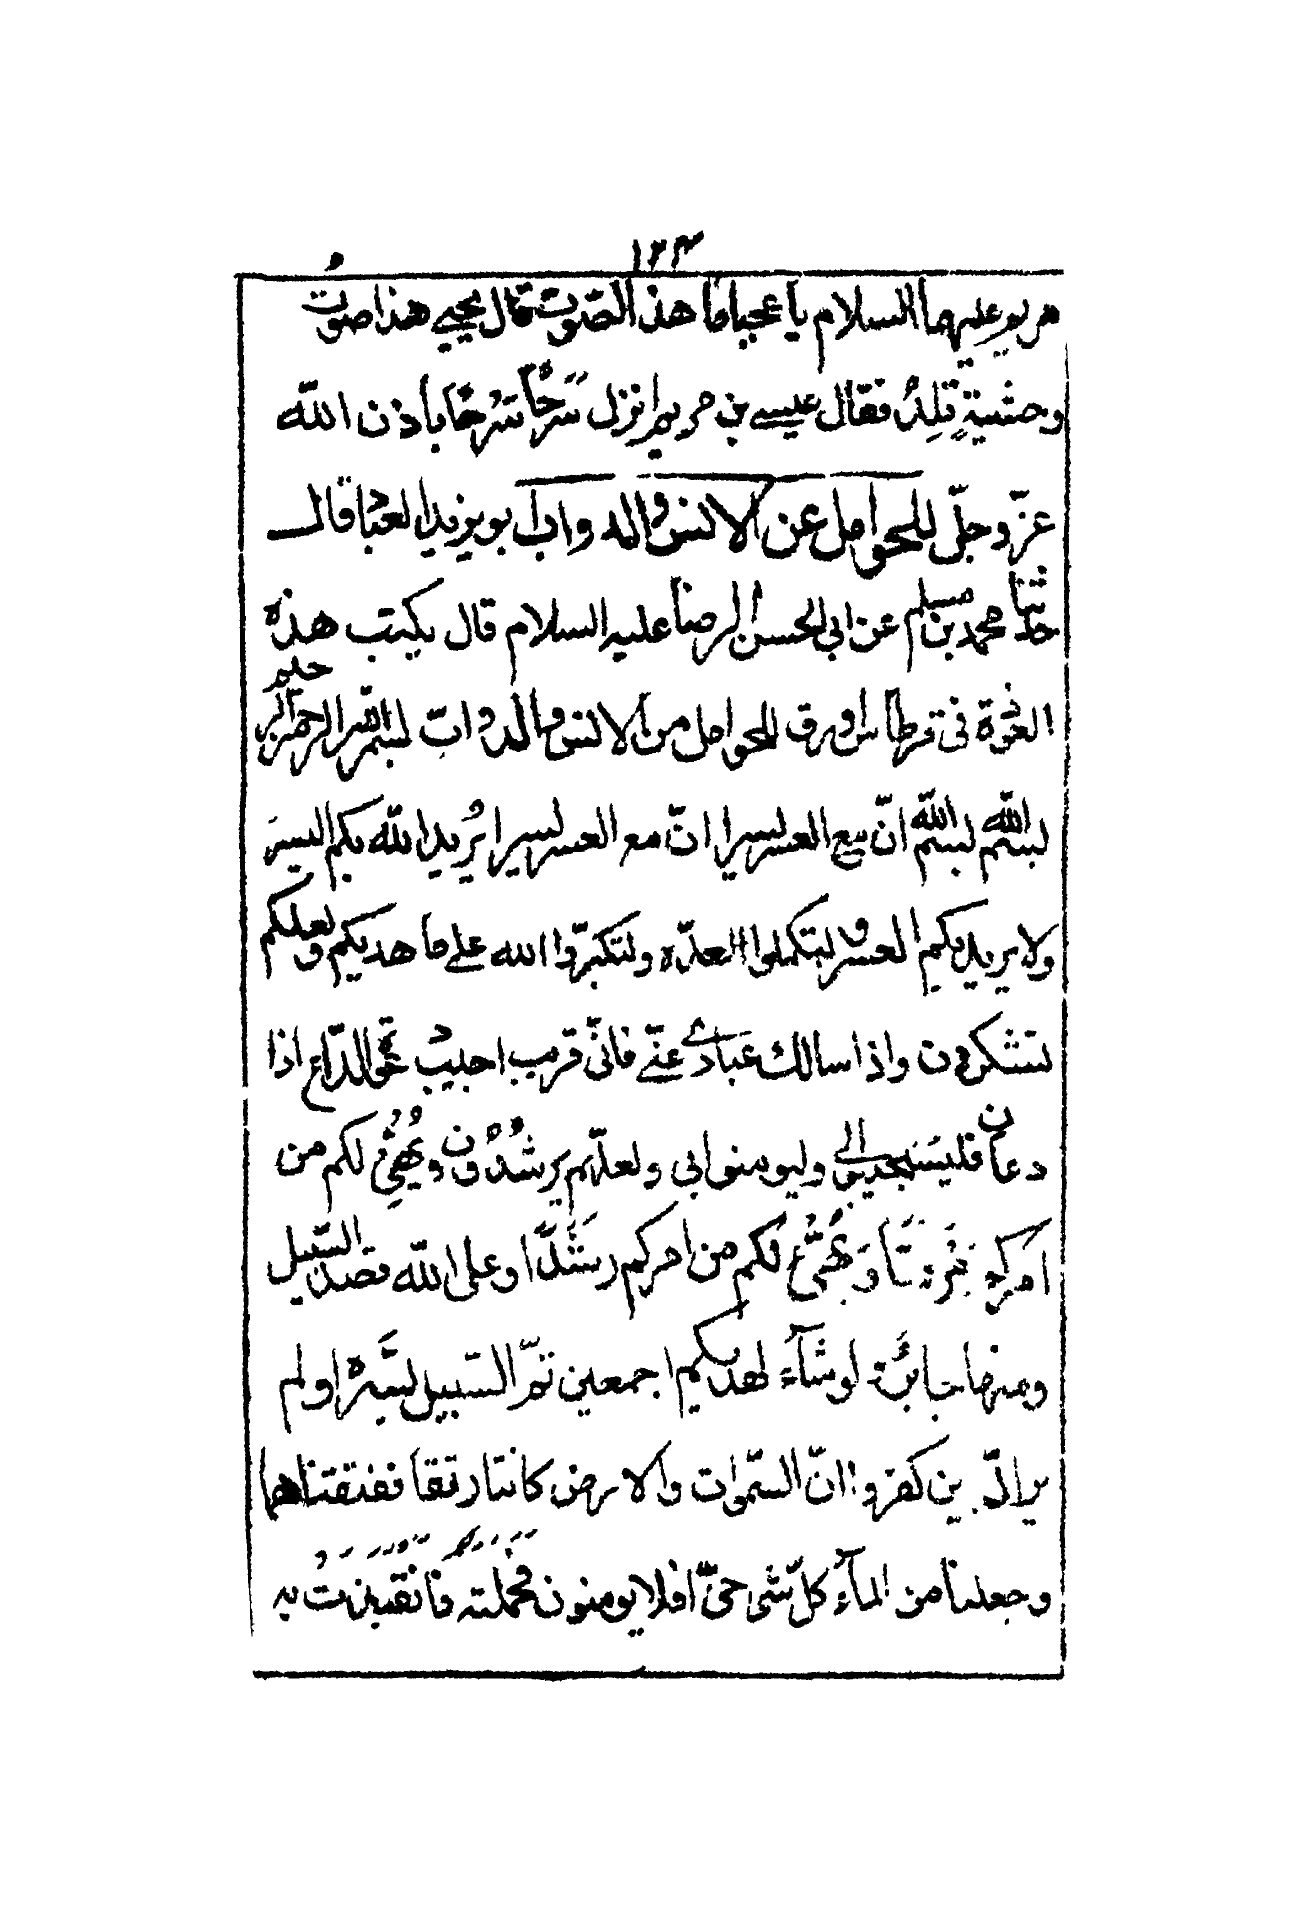 ١٢٤
مريم عليهما السلام يا عجبا ما هذا الصوت قال يحيى هذا صوتُ
وحشيةٍ تلِدُ فقال عيسى بن مريم انزل سَرحًا سَرحًا باذن الله
عزّ وجلّ للحوامل عن الانس والدواب ابو يزيد العبّاد قال
حدّثنا محمد بن مسلم عن ابي الحسن الرضا عليه السلام قال يكتب هذه
العوذة في قرطاس او رق للحوامل من الانس والدوابّ بسم الله الرحمن الرحيم
بسم الله بسم الله انّ مع العسر يسرا انّ مع العسر يسرا يُريد الله بكم اليسر
ولا يريد بكم العسر ولتكملوا العدّة ولتكبّروا الله على ما هديكم ولعلكم
تشكرون واذا سالك عبادي عنّي فانّي قريب اجيب دعوة الداع اذا
دعان فليستجيبوا لي وليومنوا بي ولعلّهم يرشُدُون ويُهيّئ لكم من
امركم مِرفقًا وَيُهيّئ لكم من امركم رَشَدًا وعلى الله قصد السّبيل
ومنها جائر ولو شآء لهديكم اجمعين ثمّ السّبيل يسّره اولم
ير الّذين كفروا انّ السّموات والارض كانتا رتقا ففتقناهما
وجعلنا من المآء كلّ شى حىّ افلا يومنون فحملته فانتبذت به